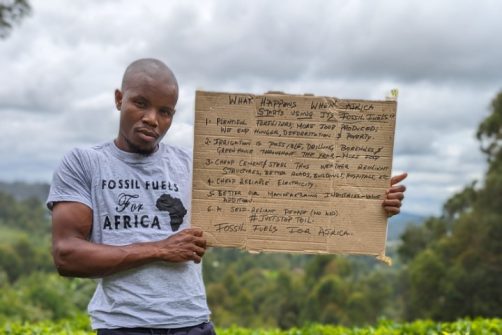 FOSSIL FUELS
For
AFRICA
WHAT HAPPENS WHEN AFRICA
STARTS USING ITS FOSSIL FUELS"
1. PLENTIFUL FERTILIZERS; MORE FOOD PRODUCED;
WE END HUNGER, DEFORESTATION & POVERTY
2. IRRIGATION IS POSSIBLE, DRILLING BOREHOLES &
GREENHOUSE THROUGHOUT THE YEAR - MORE FOOD
3. CHEAP CEMENT & STEEL THUS WEATHER RESILIENT
STRUCTURES, BETTER ROADS, BUILDINGS, HOSPITALS ETC
4. CHEAP RELIABLE ELECTRICITY.
5. BETTER FOR MANUFACTURING INDUSTRIES - VALUE
ADDITION
6. A SELF-RELIANT PEOPLE (NO AID)
STOP OIL.
FOSSIL FUELS FOR AFRICA.